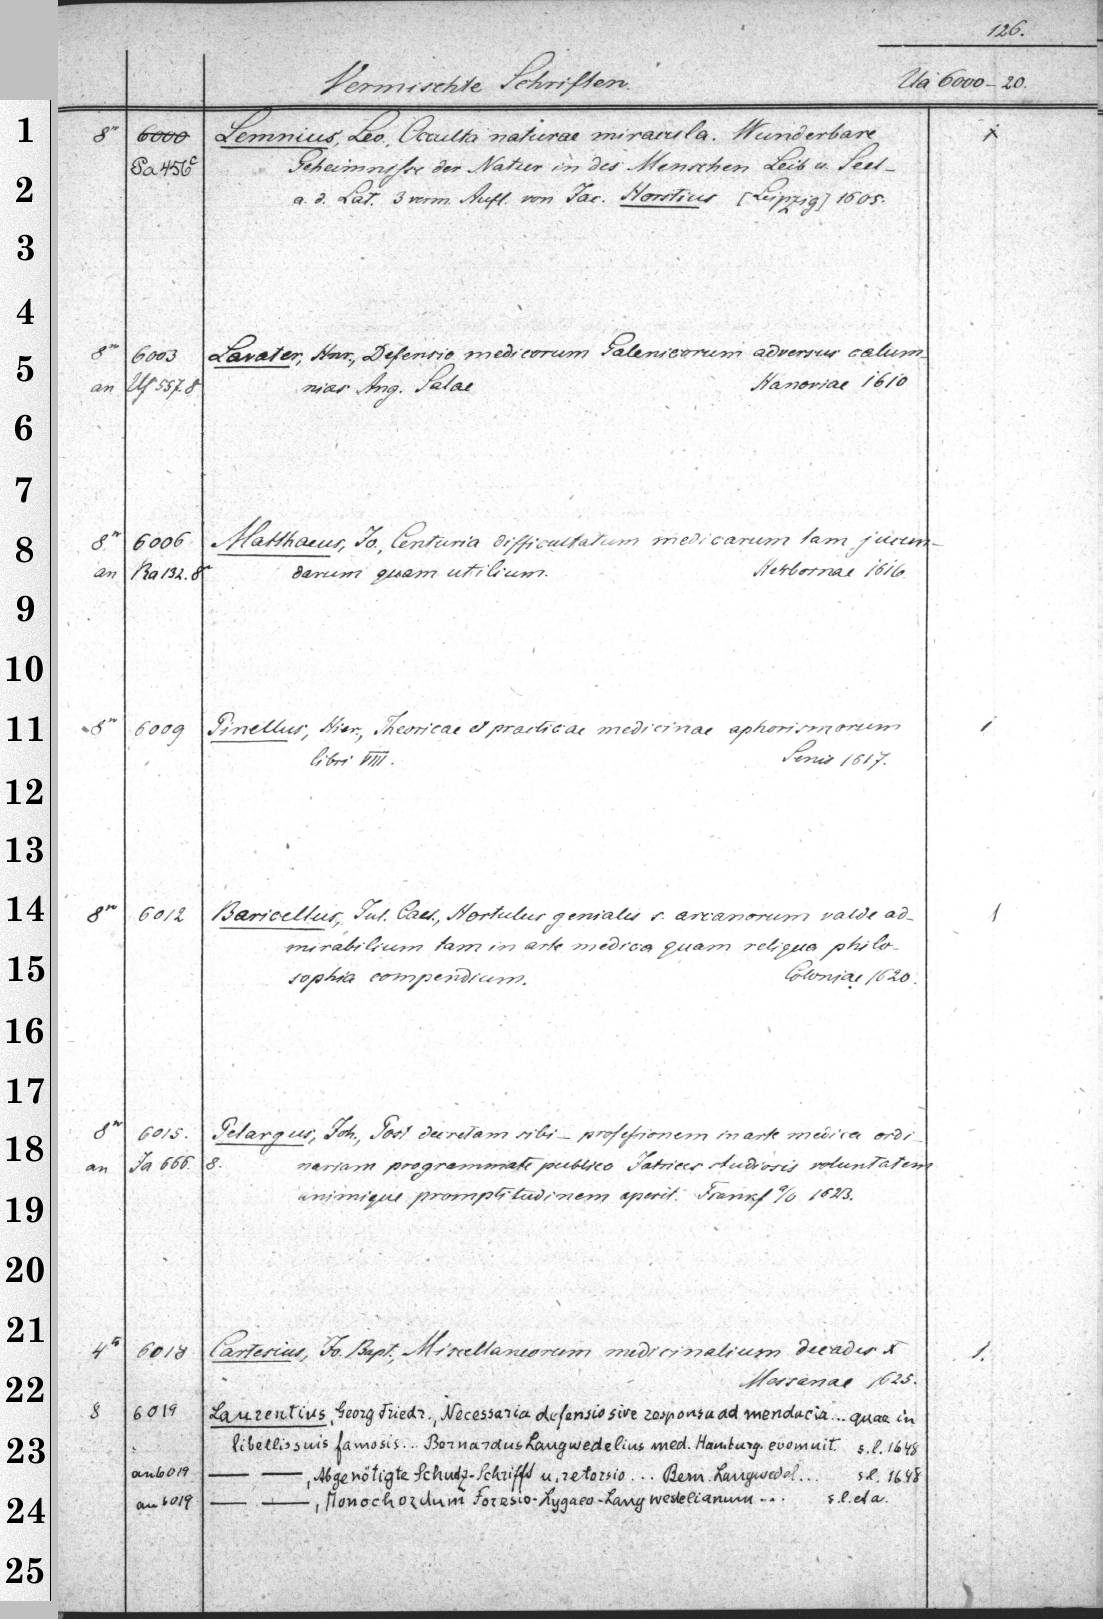 126.
Vermischte Schriften. Ua 6000-20.
1 8° 6000 Lemnius, Leo., Occulta naturae miracula. Wunderbare 1
Pa 456c Geheimnisse der Natur in des Menschen Leib u. Seel-
2 a. d. Lat. 3 verm. Aufl. von Jac. Horstius [Leipzig] 1605.
3
4
8° 6003 Lavater, Hnr., Defensio medicorum Galenicorum adversus calum-
5 an Uf 557. 8 nias Ang. Salae Hanoviae 1610
6
7
8 8° 6006 Matthaeus, Jo., Centuria difficultatum medicarum tam jucun-
an Ra 132. 8° darum quam utilium. Herbornae 1616.
9
10
11 8° 6009 Pinellus, Hier., Theoricae et practicae medicinae aphorismorum 1
libri VIII. Senis 1617.
12
13
14 8° 6012 Baricellus, Jul. Caes., Hortulus genialis s. arcanorum valde ad- 1
mirabilium tam in arte medica quam reliqua philo-
15 sophia compendium. Coloniae 1620.
16
17
8° 6015. Pelargus, Joh., Post decretam sibi – professionem in arte medica ordi-
18 an Ja 666. 8. nariam programmate publico Iatrices studiosis voluntatem
19 animique promptitudinem aperit. Frankf a/O 1623.
20
21 4to 6018 Cartesius, Jo. Bapt., Miscellaneorum medicinalium decades X 1.
22 Messanae 1625.
8 6019 Laurentius, Georg Friedr., Necessaria defensio sive responsu ad mendacia... quae in
23 libellis suis famosis... Bernardus Langwedelius med. Hamburg. evomuit. s. l. 1648
an 6019 — —, Abgenötigte Schutz-Schrifft u. retorsio... Bern. Langwedel... s. l. 1648
24 an 6019 — —, Monochordum Foresio-Hygaeo-Langwedelianum... s. l. et a.
25